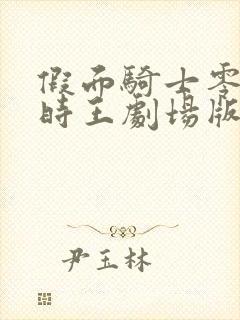 假而騎士零
時王劇場版
尹玉林